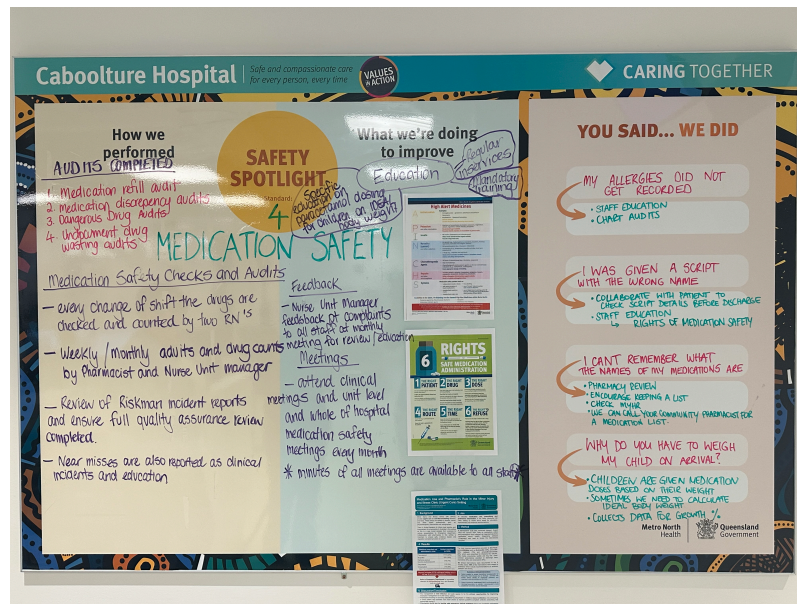 Caboolture Hospital
Safe and compassionate care
for every person, every time
VALUES
in ACTION
CARING TOGETHER
How we
performed
AUDITS COMPLETED
1. Medication refill audit
2. medication discrepancy audits
3. Dangerous Drug Audits
4.
drug
audits
SAFETY
SPOTLIGHT
standard:
4
MEDICATION SAFETY
What we're doing
to improve
Education
Regular
inservices
Mandatory
training
Specific
education on
paracetamol dosing
for children on IDEAL
body weight
Medication Safety Checks and Audits
– every change of shift the drugs are
checked and counted by two RN's
– Weekly/monthly audits and drug counts
by Pharmacist and Nurse Unit manager
– Review of Riskman incident reports
and ensure full quality assurance review
completed.
– Near misses are also reported as clinical
incidents and education
Feedback
– Nurse Unit Manager
feedback of complaints
to all staff at monthly
meeting for review/education
Meetings
– attend clinical
meetings and unit level
and whole of hospital
medication safety
meetings every month
* minutes of all meetings are available to all staff *
High Alert Medicines
6 RIGHTS
SAFE MEDICATION
ADMINISTRATION
1 THE RIGHT PATIENT
2 THE RIGHT DRUG
3 THE RIGHT DOSE
4 THE RIGHT ROUTE
5 THE RIGHT TIME
6 THE RIGHT TO REFUSE
YOU SAID... WE DID
MY ALLERGIES DID NOT
GET RECORDED
• STAFF EDUCATION
• CHART AUDITS
I WAS GIVEN A SCRIPT
WITH THE WRONG NAME
• COLLABORATE WITH PATIENT TO
CHECK SCRIPT DETAILS BEFORE DISCHARGE
• STAFF EDUCATION
↳ RIGHTS OF MEDICATION SAFETY
I CANT REMEMBER WHAT
THE NAMES OF MY MEDICATIONS ARE
• PHARMACY REVIEW
• ENCOURAGE KEEPING A LIST
• CHECK MYHR
• WE CAN CALL YOUR COMMUNITY PHARMACIST FOR
A MEDICATION LIST.
WHY DO YOU HAVE TO WEIGH
MY CHILD ON ARRIVAL?
• CHILDREN ARE GIVEN MEDICATION
DOSES BASED ON THEIR WEIGHT
• SOMETIMES WE NEED TO CALCULATE
IDEAL BODY WEIGHT
• COLLECTS DATA FOR GROWTH %
Metro North
Health
Queensland
Government